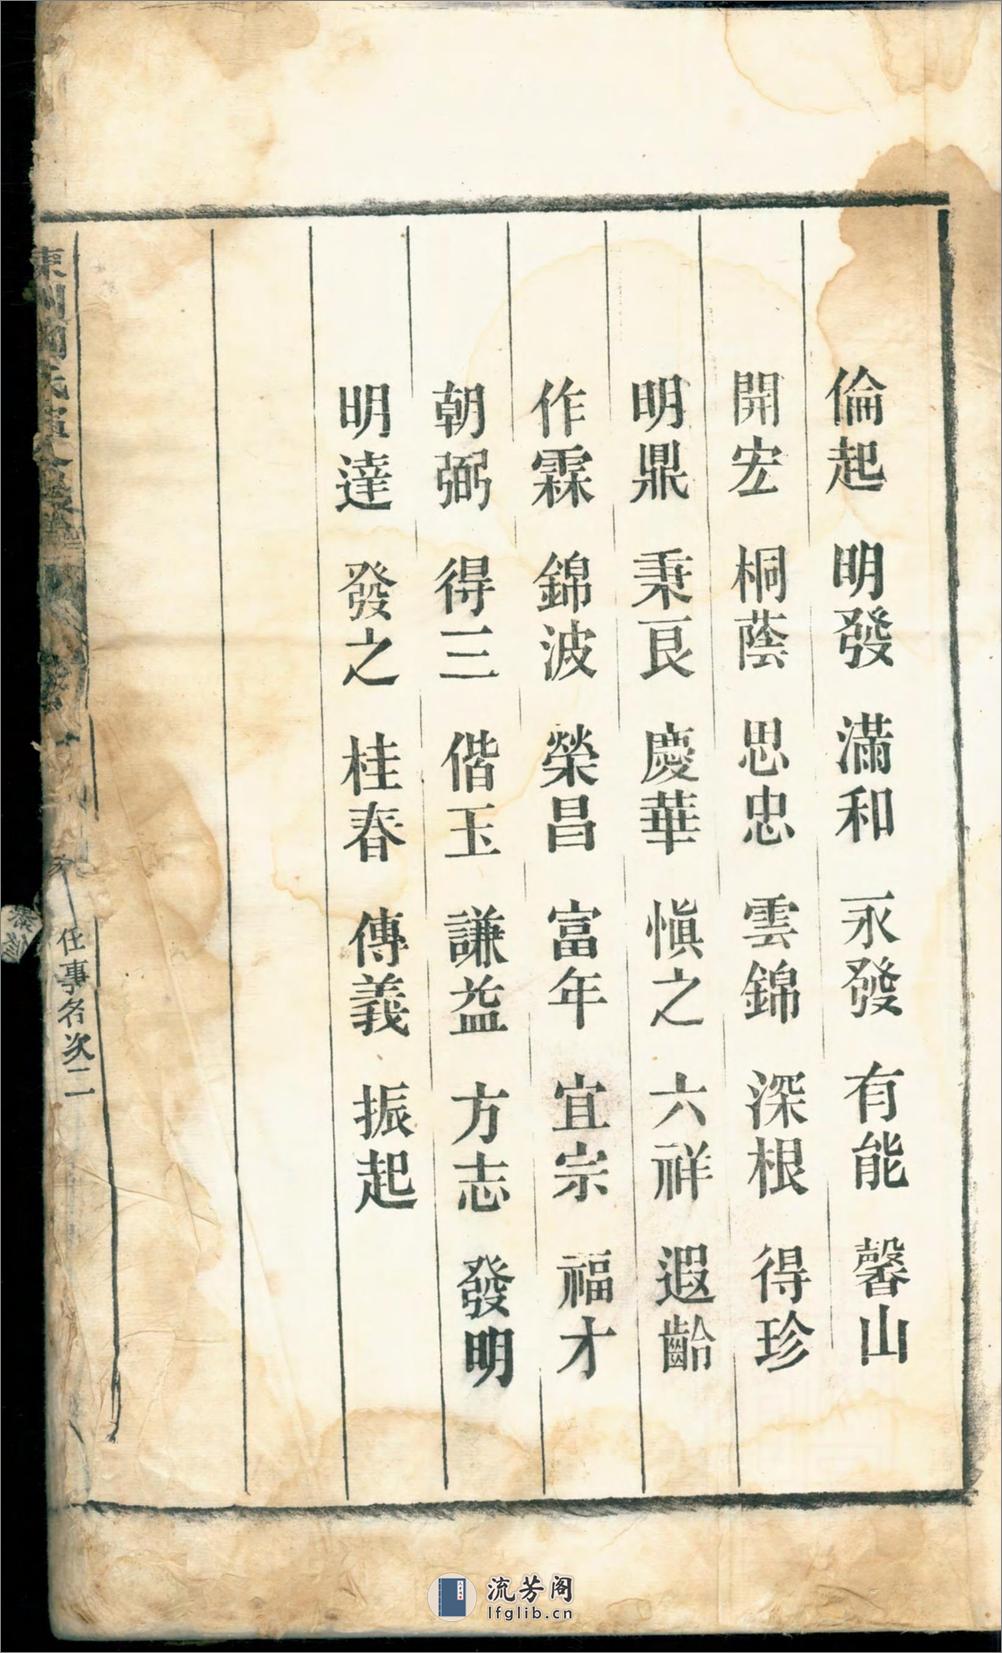 倫起 明發 滿和 永發 有能 馨山
開宏 桐蔭 思忠 雲錦 深根 得珍
明鼎 秉艮 慶華 慎之 六祥 遐齡
作霖 錦波 榮昌 富年 宜宗 福才
朝弼 得三 偕玉 謙益 方志 發明
明達 發之 桂春 傳義 振起
任事名次二
流芳阁
lfglib.cn